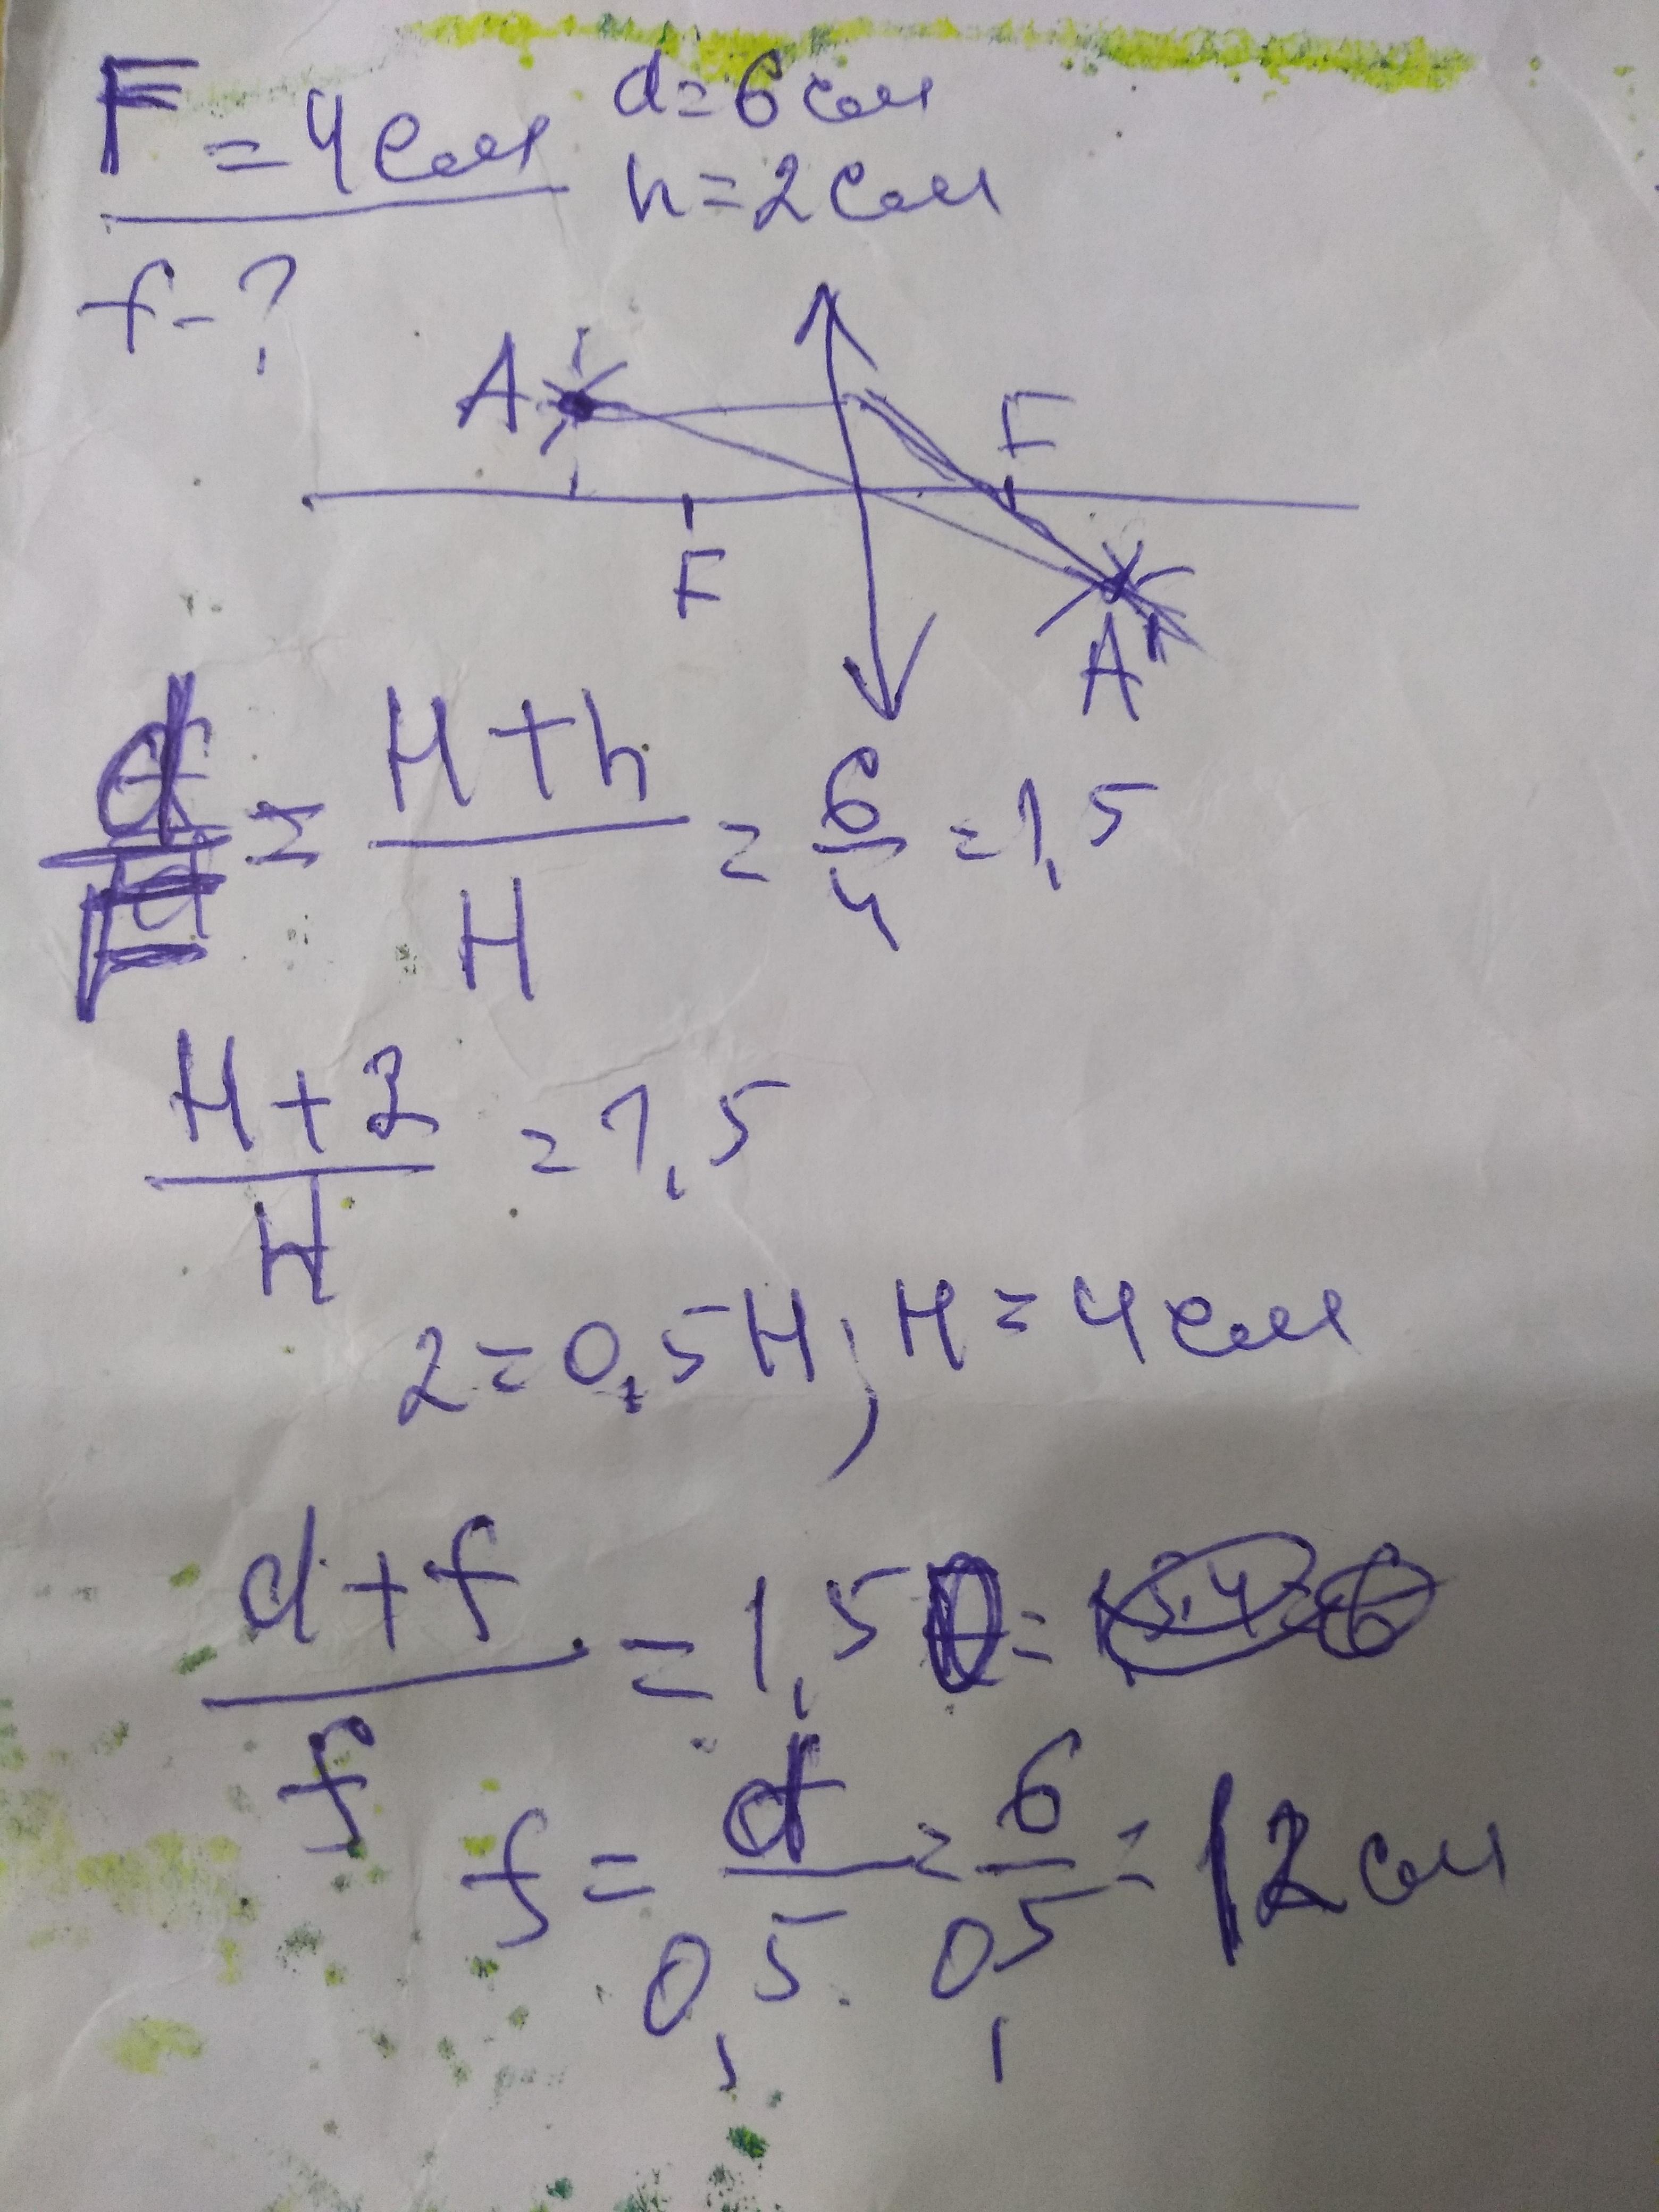 F = 4 см d = 6 см
h = 2 см
f - ?
A
F
F
A'
d/F = (H + h)/H = 6/4 = 1,5
(H + 2)/H = 1,5
2 = 0,5H; H = 4 см
(d + f)/f = 1,5 =
f = d/0,5 = 6/0,5 = 12 см